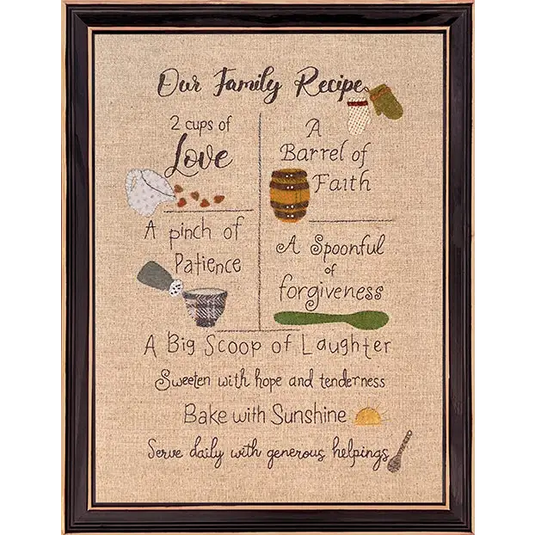 Our Family Recipe
2 cups of
Love
A
Barrel of
Faith
A pinch of
Patience
A Spoonful
of
forgiveness
A Big Scoop of Laughter
Sweeten with hope and tenderness
Bake with Sunshine
Serve daily with generous helpings